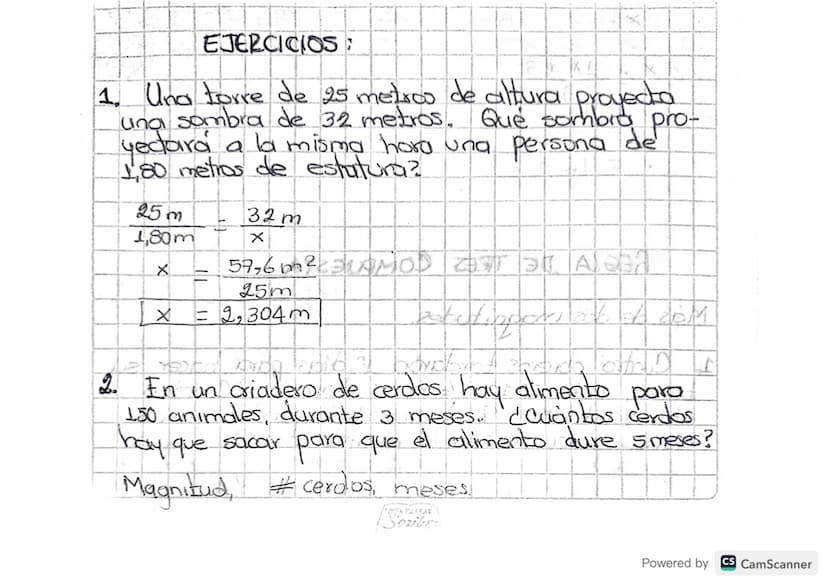 EJERCICIOS:
1. Una torre de 25 metros de altura proyecta
una sombra de 32 metros. Qué sombra pro-
yectará a la misma hora una persona de
1,80 metros de estatura?
25m = 32m
1,80m x
x = 57,6 m²
25m
x = 2,304m
REGLA DE TRES COMPUESTA
Más de dos magnitudes
2. En un criadero de cerdos hay alimento para
150 animales, durante 3 meses. ¿Cuántos cerdos
hay que sacar para que el alimento dure 5 meses?
Magnitud, # cerdos, meses.
Scribe
Powered by CS CamScanner